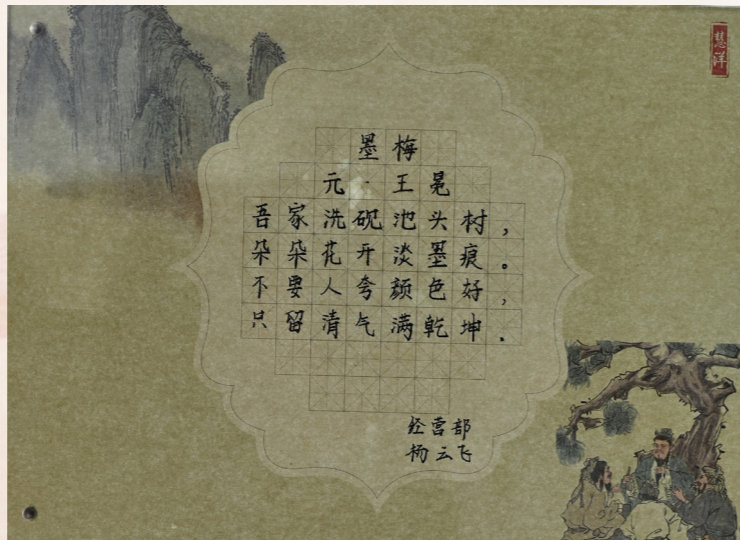 慧洋
墨梅
元·王冕
吾家洗砚池头村，
朵朵花开淡墨痕。
不要人夸颜色好，
只留清气满乾坤.
经营部
杨云飞